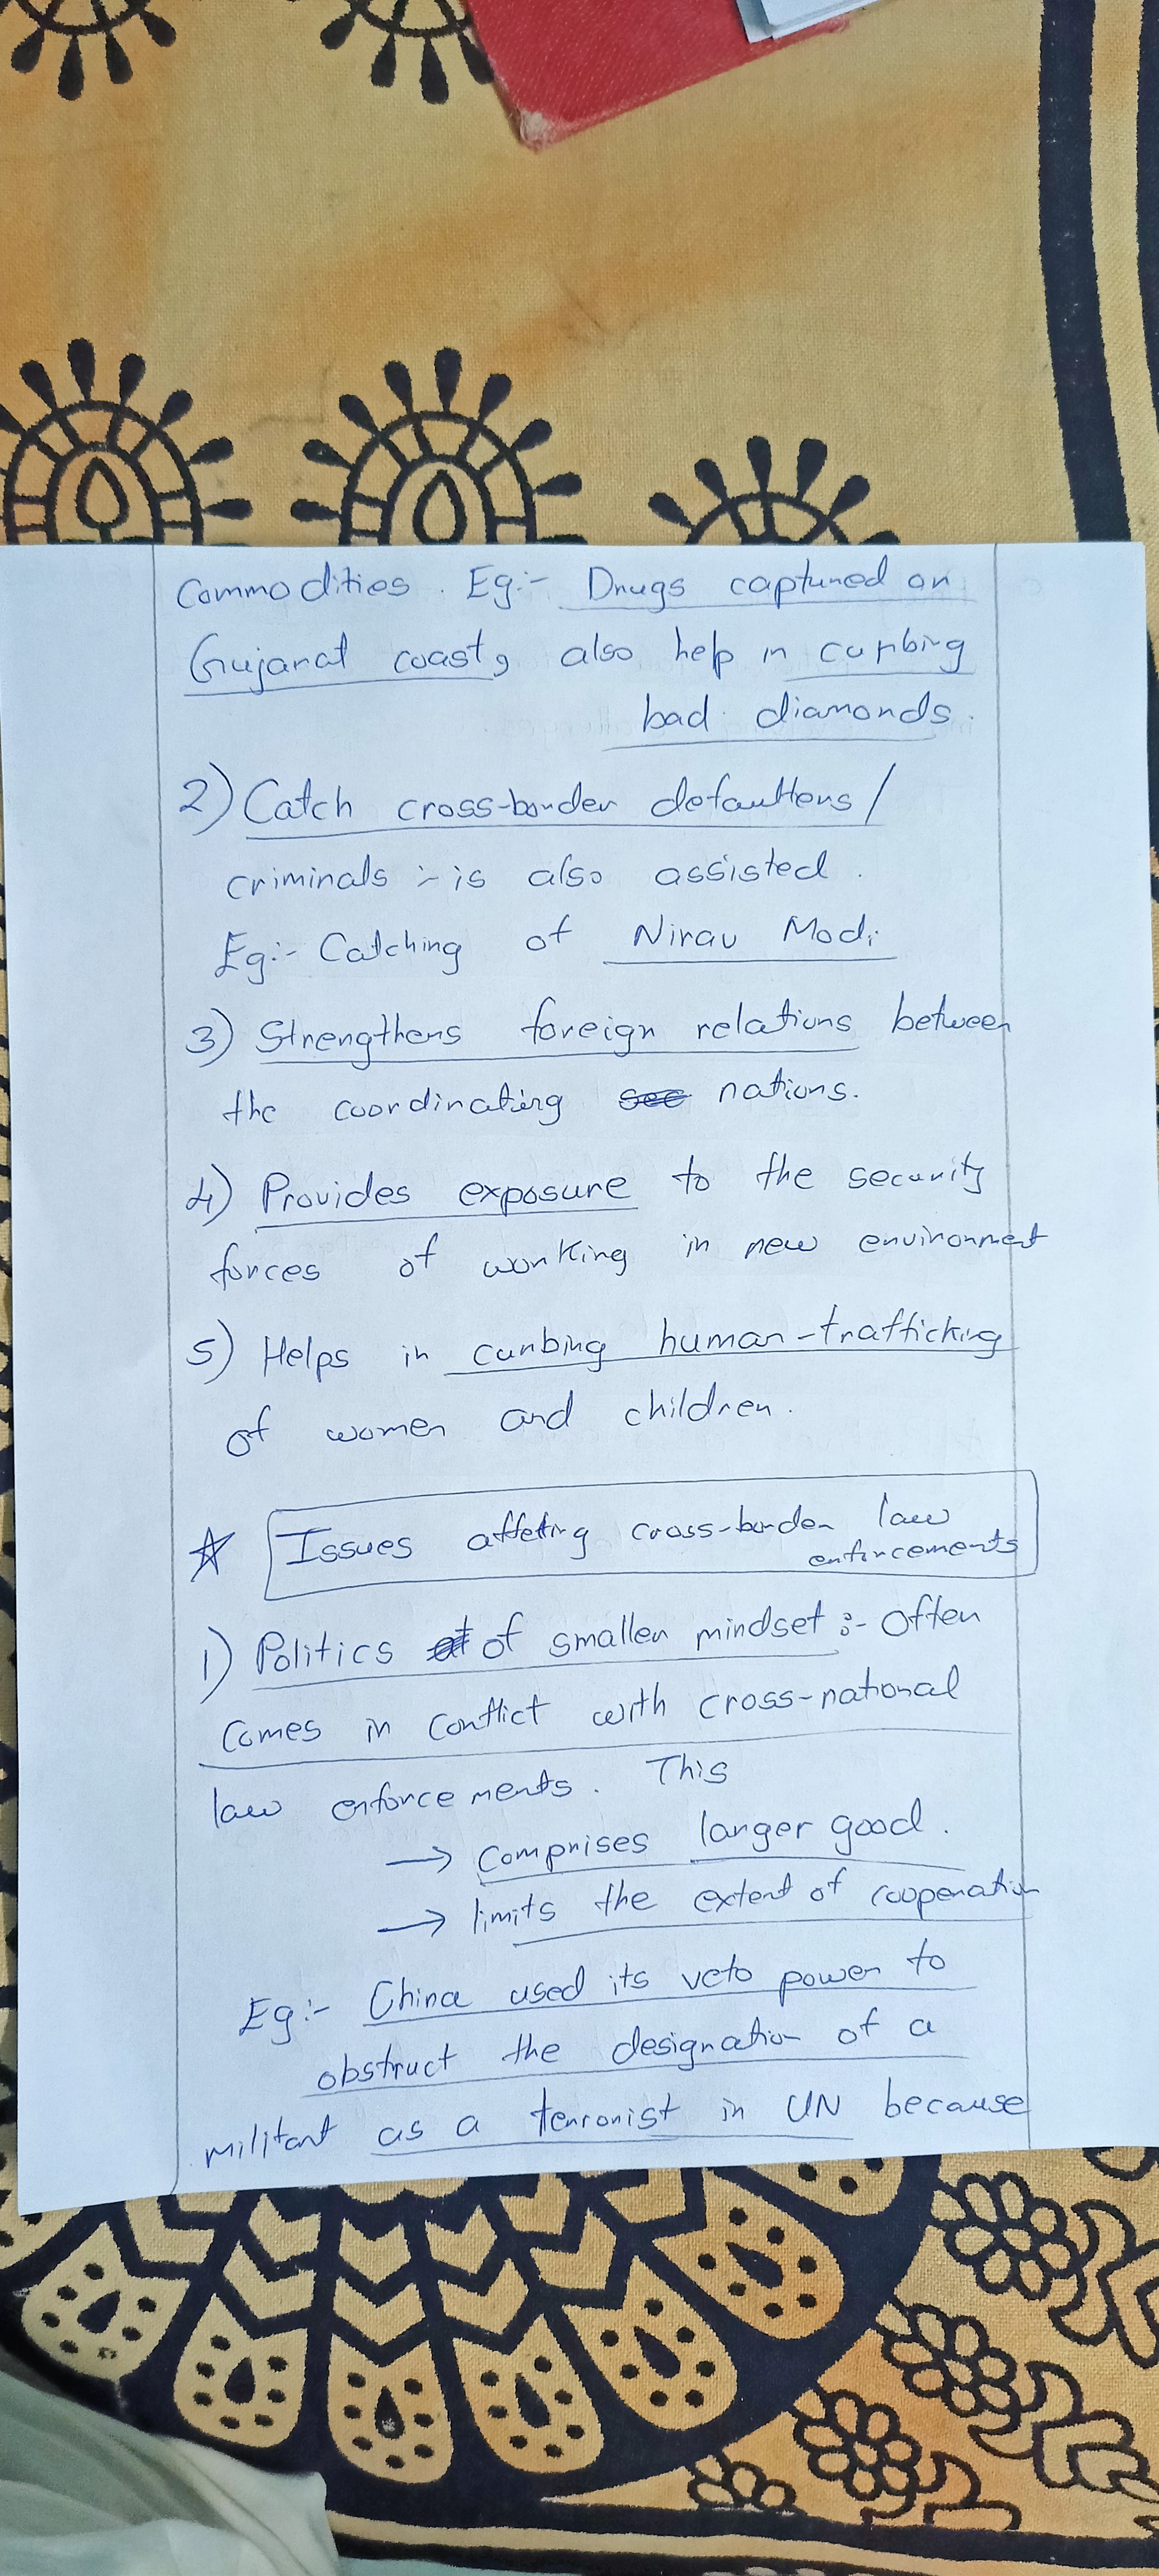 Commodities. Eg:- Drugs captured on
Gujarat coast, also help in curbing
bad diamonds.
2) Catch cross-border defaulters/
criminals :- is also assisted.
Eg:- Catching of Nirav Modi
3) Strengthens foreign relations between
the coordinating see nations.
4) Provides exposure to the security
forces of working in new environment
5) Helps in curbing human-trafficking
of women and children.
☆ Issues affeting cross-border law
enforcements
1) Politics of smaller mindset :- Often
comes in conflict with cross-national
law enforcements. This
→ Comprises larger good.
→ limits the extent of cooperation
Eg:- China used its veto power to
obstruct the designation of a
militant as a terrorist in UN because